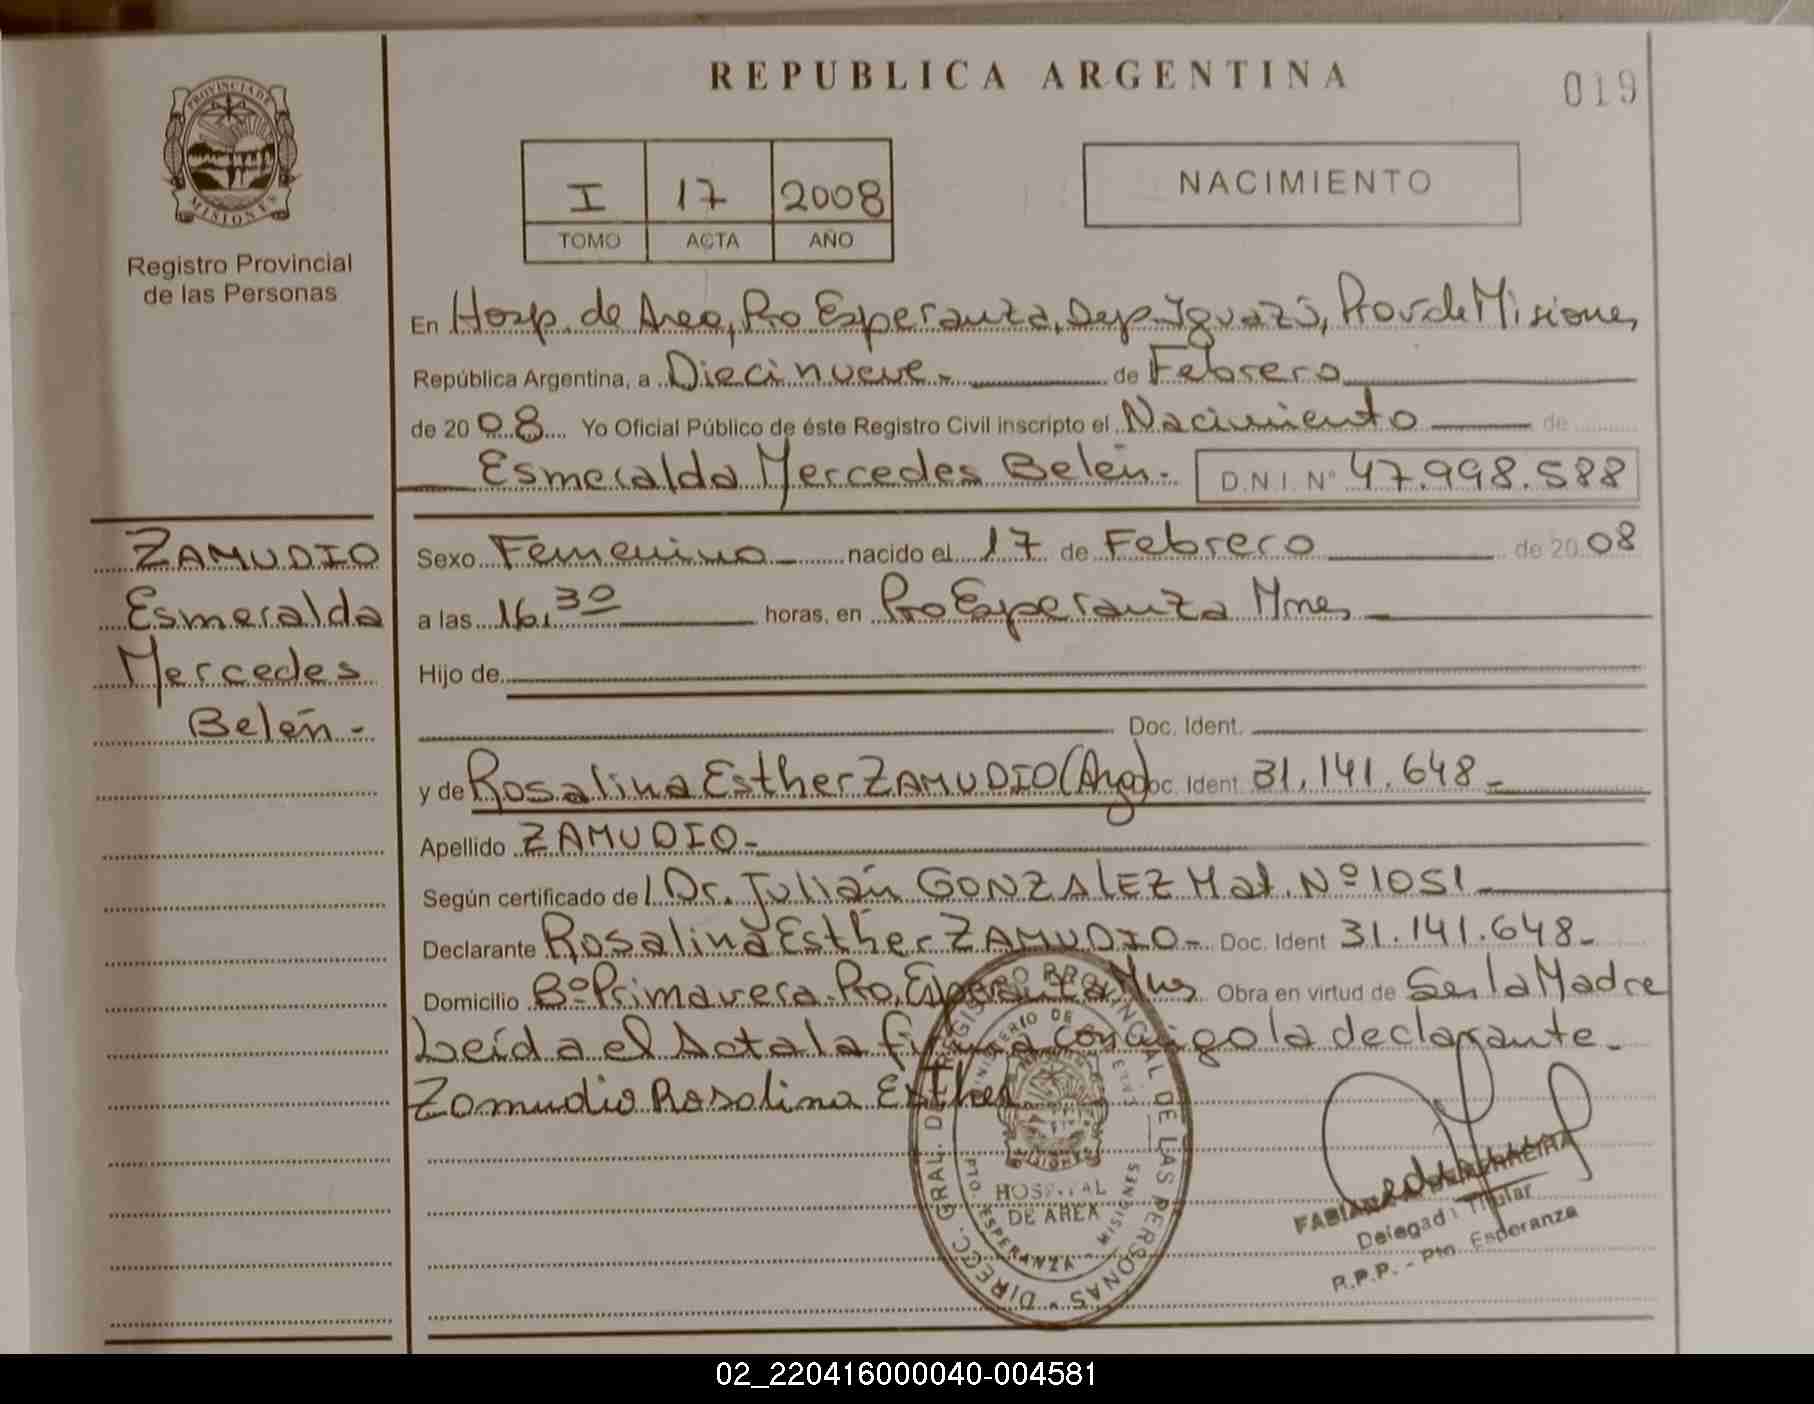 REPUBLICA ARGENTINA
019
PROVINCIA DE
MISIONES
Registro Provincial
de las Personas
I 17 2008
TOMO ACTA AÑO
NACIMIENTO
En Hosp. de Area, Pto Esperanza, Dep. Iguazú, Prov de Misiones
República Argentina, a Diecinueve - de Febrero
de 2008 Yo Oficial Público de éste Registro Civil inscripto el Nacimiento de
Esmeralda Mercedes Belén. D.N.I. Nº 47.998.588
ZAMUDIO
Esmeralda
Mercedes
Belén -
Sexo Femenino nacido el 17 de Febrero de 2008
a las 16,30 horas, en Pto Esperanza Mnes
Hijo de
Doc. Ident.
y de Rosalina Esther ZAMUDIO (Arg) Doc. Ident 31.141.648 -
Apellido ZAMUDIO -
Según certificado de Dr. Julián GONZALEZ Mat. Nº 1051
Declarante Rosalina Esther ZAMUDIO - Doc. Ident 31.141.648 -
Domicilio Bº Primavera. Pto. Esperanza Mnes Obra en virtud de Ser la Madre
Leída el Acta la firma conmigo la declarante -
Zamudio Rosalina Esther
DIRECC. GRAL. DE REGISTRO PROVINCIAL DE LAS PERSONAS -
MINISTERIO DE
MISIONES
HOSPITAL
DE AREA
PTO. ESPERANZA - MISIONES
Delegada Titular
R.P.P. - Pto. Esperanza
02_220416000040-004581